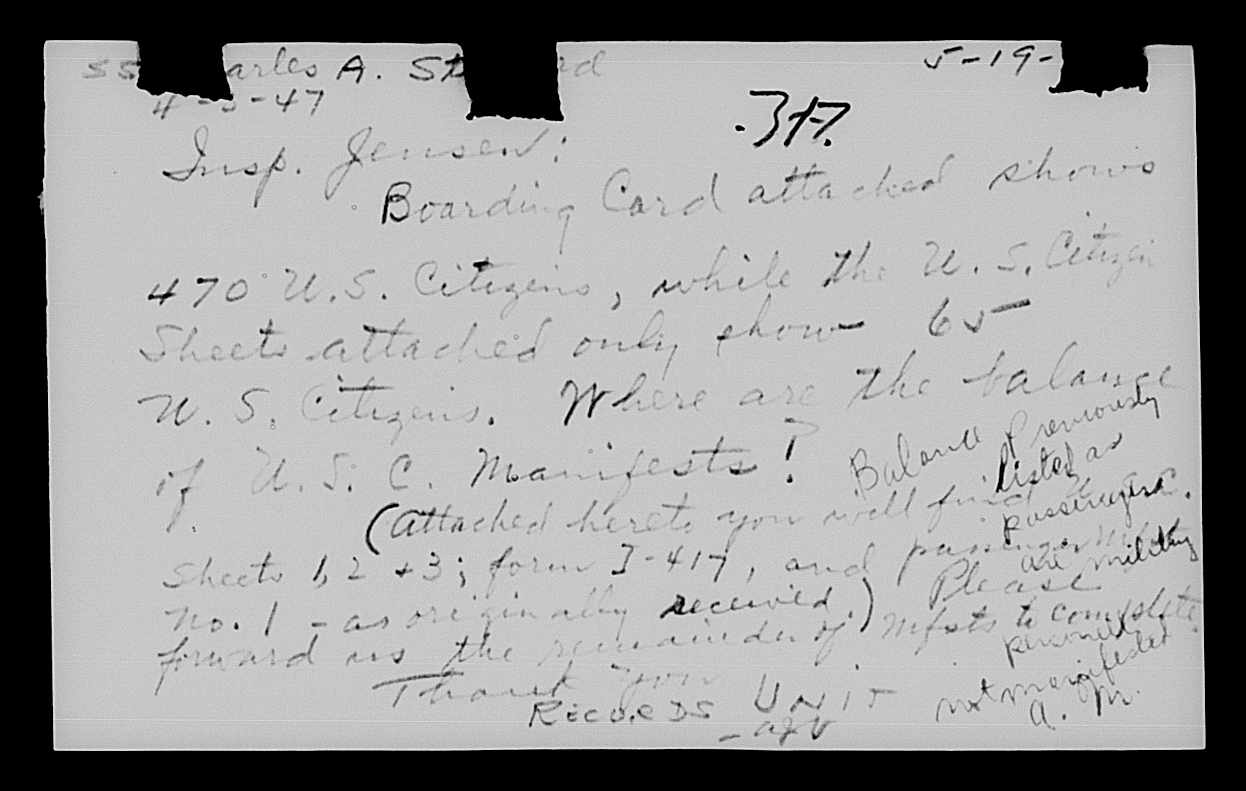 SS arles A. St rd 5-19-
4-3-47
347.
Insp. Jensen:
Boarding Card attached shows
470 U.S. Citizens, while the U.S. Citizen
Sheets attached only show 65
U.S. Citizens. Where are the balance
of U.S.C. Manifests?
(Attached hereto you will find U.S.C.
Sheets 1, 2 + 3; form I-417, and passenger Mfst
No. 1 - as originally received.) Please
forward us the remainder of Mfsts to complete.
Thank You
RECORDS UNIT
- afv
Balance previously
listed as
passengers
are military
personnel
not manifested
A. M.